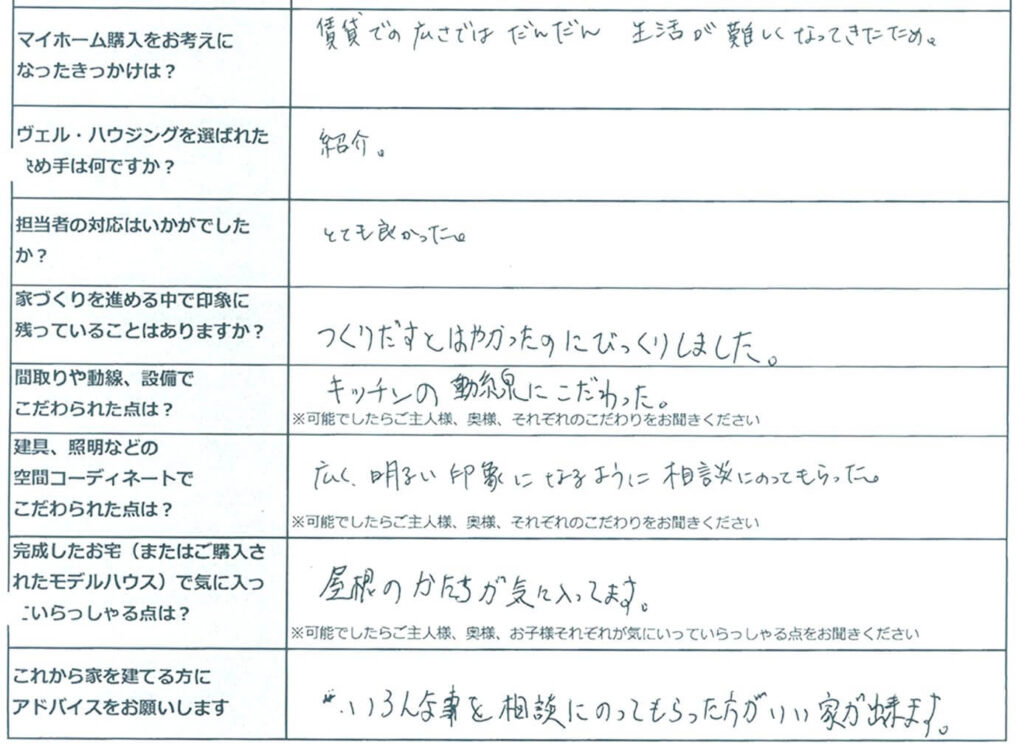 マイホーム購入をお考えに
なったきっかけは？
賃貸での広さでは だんだん 生活が難しくなってきたため。
ヴェル・ハウジングを選ばれた
決め手は何ですか？
紹介。
担当者の対応はいかがでした
か？
とても良かった。
家づくりを進める中で印象に
残っていることはありますか？
つくりだすとはやかったのにびっくりしました。
間取りや動線、設備で
こだわられた点は？
キッチンの動線にこだわった。
※可能でしたらご主人様、奥様、それぞれのこだわりをお聞きください
建具、照明などの
空間コーディネートで
こだわられた点は？
広く、明るい印象になるように相談にのってもらった。
※可能でしたらご主人様、奥様、それぞれのこだわりをお聞きください
完成したお宅（またはご購入さ
れたモデルハウス）で気に入っ
ていらっしゃる点は？
屋根のかたちが気に入ってます。
※可能でしたらご主人様、奥様、お子様それぞれが気にいっていらっしゃる点をお聞きください
これから家を建てる方に
アドバイスをお願いします
いろんな事を相談にのってもらった方がいい家が出来ます。